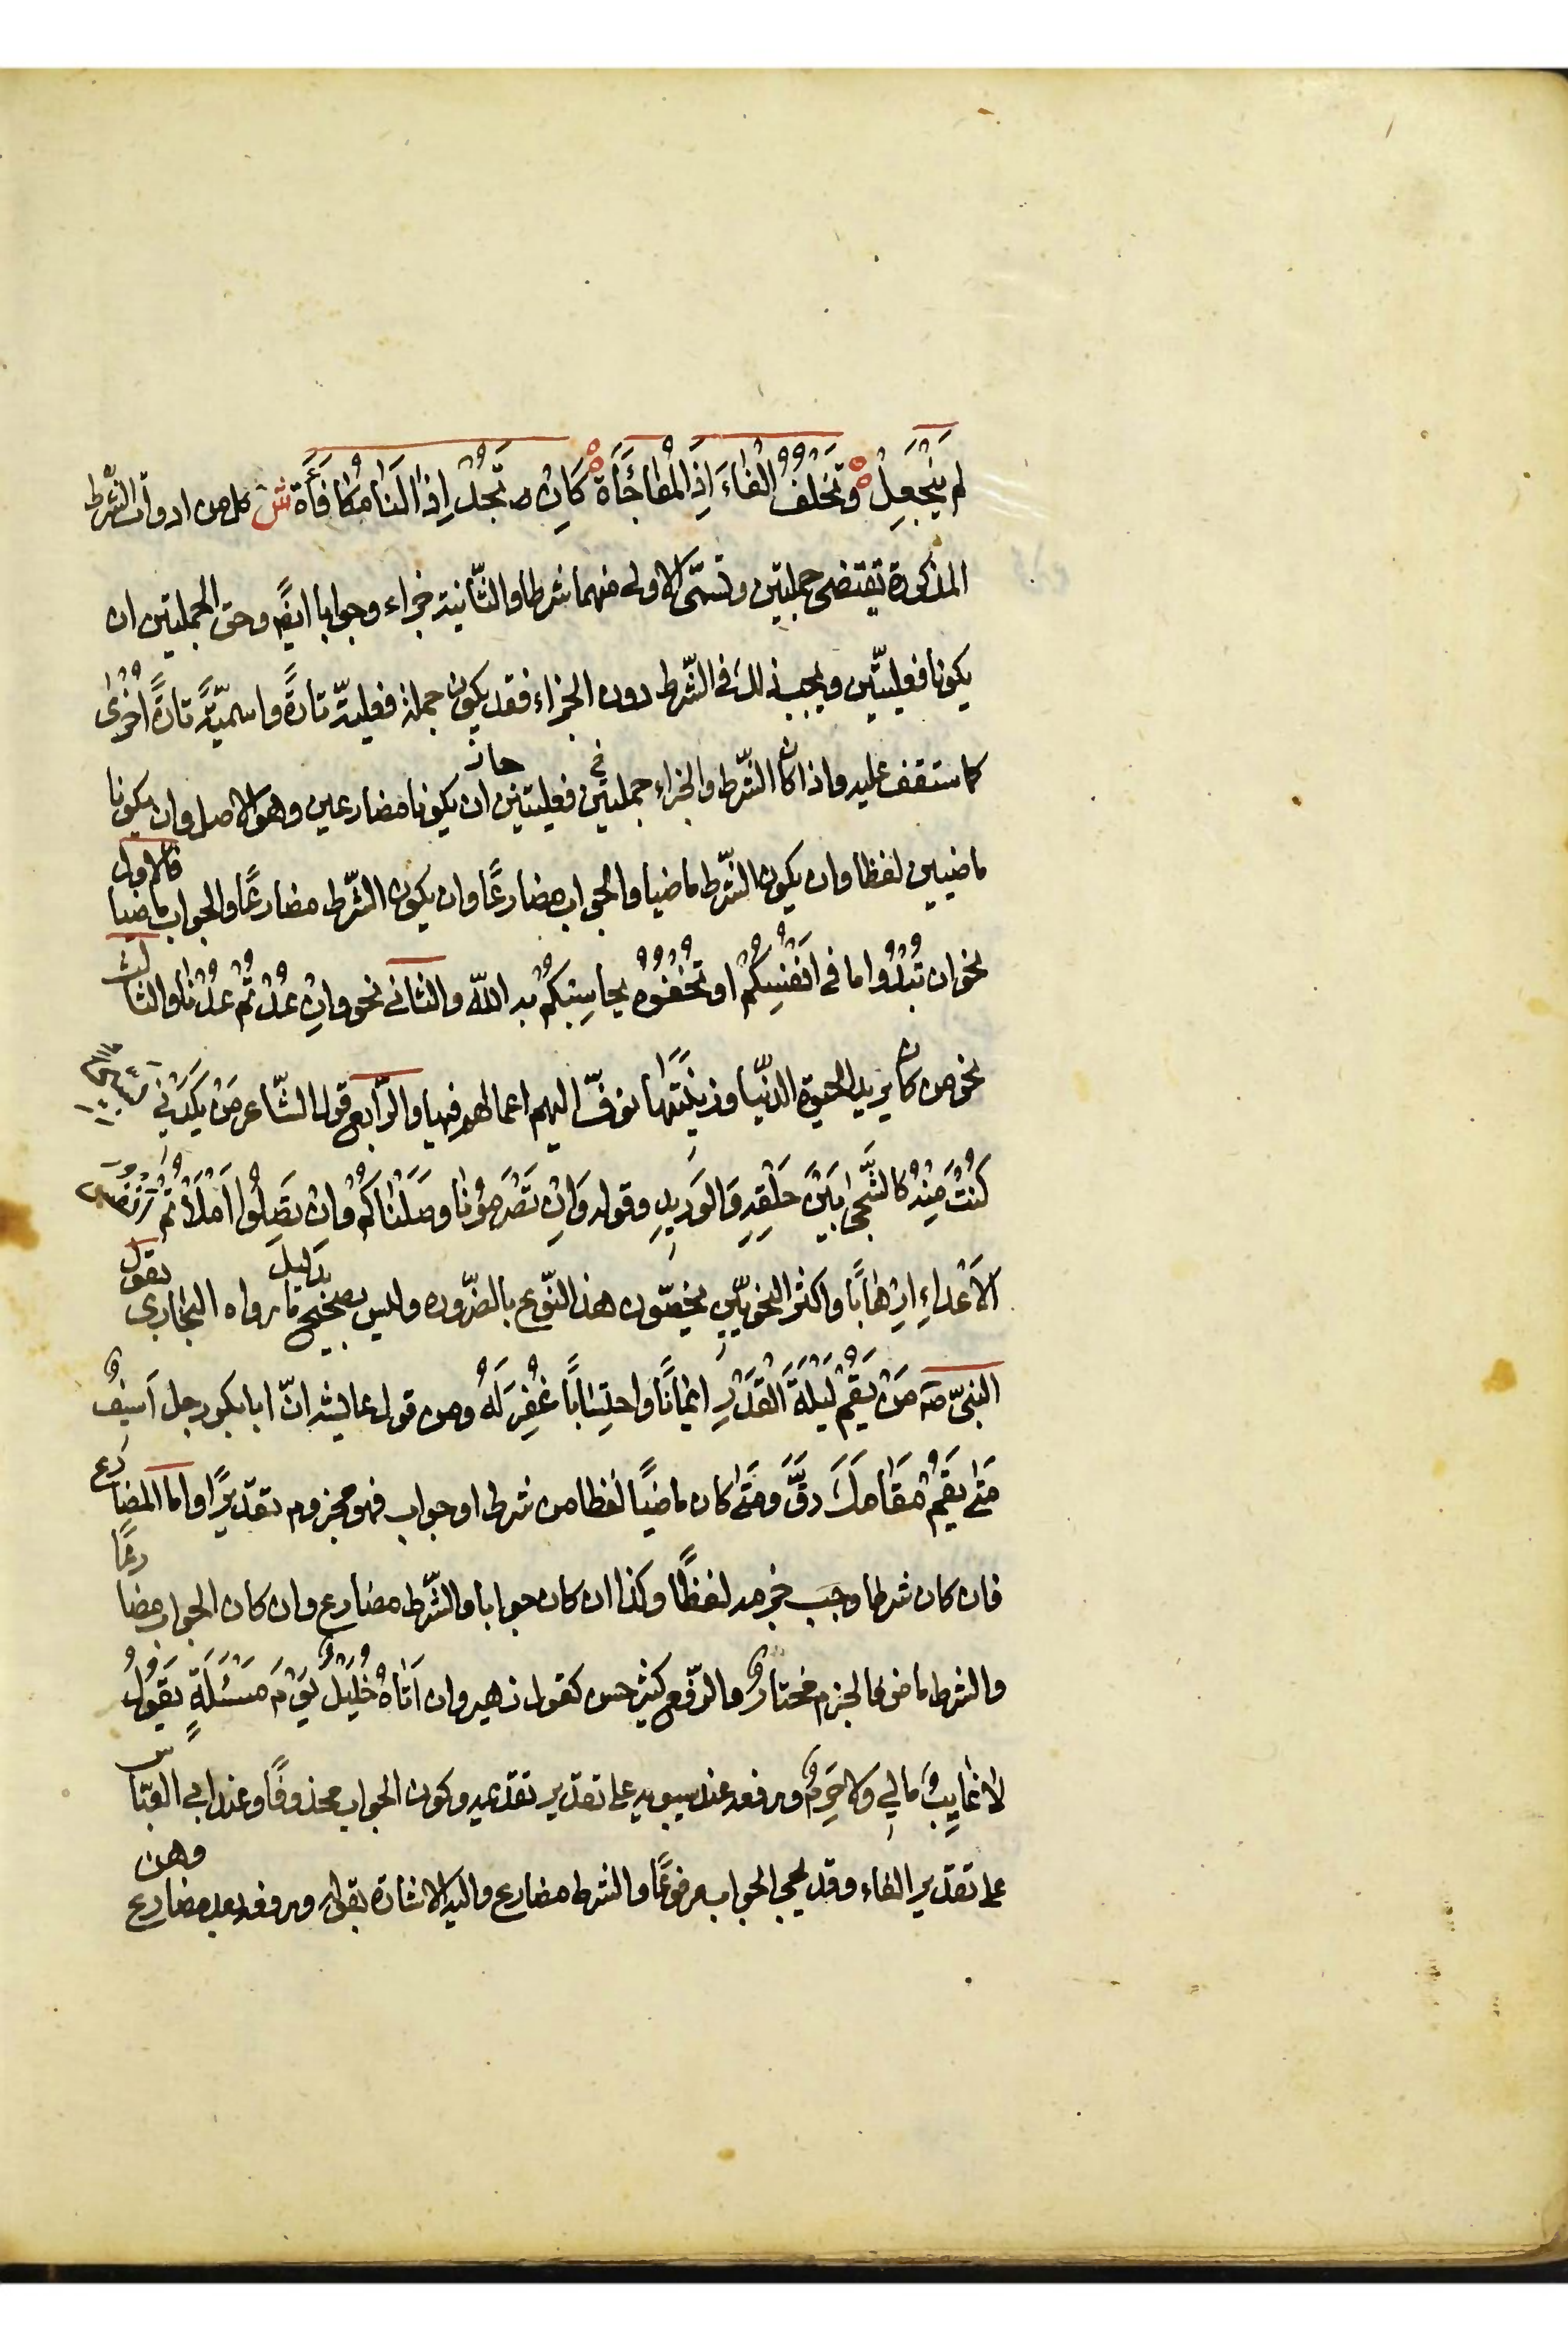 لم يَنْجَعِلْ ه وَتَخْلُفُ الْفَاءَ اِذَا الْمُفَاجَأَة ه كَاِنْ تَجُدْ اِذًا لَنَا مُكَافَأَة ش كل من ادوات الشّرط
المذكورة تقتضى جملتين وتسمّى الاولى منهما شرطا والثّانية جزاء وجوابا ايضً وحق الجملتين ان
يكونا فعليّتين ويجب ذلك فى الشّرط دون الجزاء فقد يكون جملة فعليّة تارةً واسميّةً تارةً اُخْرٰى
كما ستقف عليه واذا كان الشّرط والجزاء جملتين فعليتين جاز ان يكونا مضارعين وهو الاصل وان يكونا
ماضيين لفظا وان يكون الشّرط ماضيا والجواب مضارعًا وان يكون الشّرط مضارعًا والجواب ماضيا فالاول
نحو ان تُبْدُوا ما فى اَنْفُسِكُمْ او تُخْفُوْهُ يحاسِبْكُمْ به اللّه والثانى نحو واِنْ عُدْتُمْ عُدْنَا والثالث
نحو من كان يريد الحيوة الدنّيا وزِيْنَتَهَا نوفّ اليهم اعمالهم فيها والرّابع قول الشّاعر مَنْ يَكِدْنِي
كُنْتُ مِنْهُ كالشَّجٰى بَيْنَ حَلْقِهِ وَالوَرِيدِ وقوله وَاِنْ تَصْرِمُوْنَا وصَلْنَاكُمْ وان تَصِلُوا مَلَأْتُمْ
الاَعْدَاءِ اِرْهَابًا واكثر النحويّين يخصّون هذا النّوع بالضّروره وليس بصحيح بدليل ما رواه البخارى بقول
النبىّ صَہ مَنْ يَقُمْ لَيْلَةَ الْقَدْرِ اِيمَانًا واحتِسَابًا غُفِرَ لَهُ ومن قول عايشه انّ ابا بكر رجل اَسِيفٌ
مَتٰى يَقُمْ مَقَامَكَ رَقَّ ومَتٰى كان ماضيًا لفظا من شرط او جواب فهو مجزوم تقديرًا واما المضارع
فان كان شرطا وجب جزمه لفظًا وكذا ان كان جوابا والشّرط مضارع وان كان الجواب مضارعًا
والشرط ماض فالجزم مختارٌ والرّفع كثير حسن كقول زهير وان اَتَاهُ خَلِيْلٌ يَوْمَ مَسْئَلَةٍ يَقُوْلُ
لَا غَايِبٌ مالِي ولا حَرِمٌ ورفعه عند سيبويه على تقدير تقديمه وكون الجواب محذوفًا وعند ابى العبّاس
على تقدير الفاء وقد يجى الجواب مرفوعًا والشرط مضارع واليه الاشارة بقوله ورفعه بعد مضارع وهن